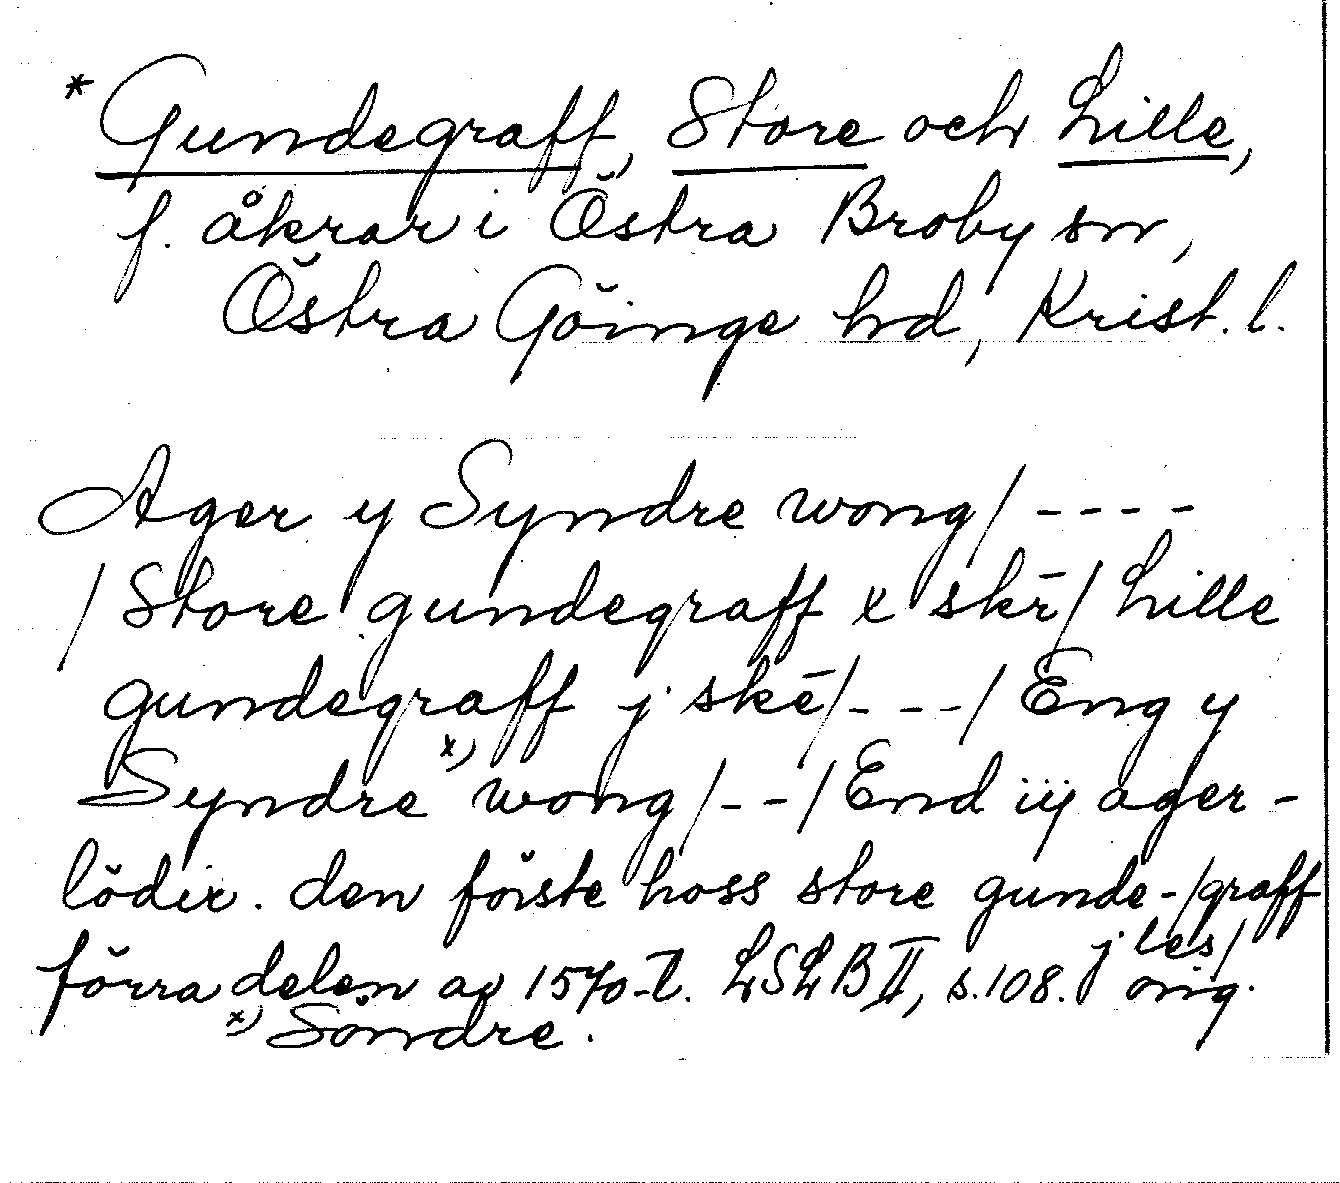 * Gundegraff, Store och Lille,
f. åkrar i Östra Broby sn,
Östra Göinge hd, Krist. l.
Ager y Syndre wong/ - - - -
/Store gundegraff x skē/ Lille
gundegraff j skē/- - -/ Eng y
Syndre x) wong/- -/ End iij ager-
lödir. den förste hoss store gunde-/graff
j les/
förra delen av 1570-t. LSLB II, s. 108. orig.
x) Söndre.